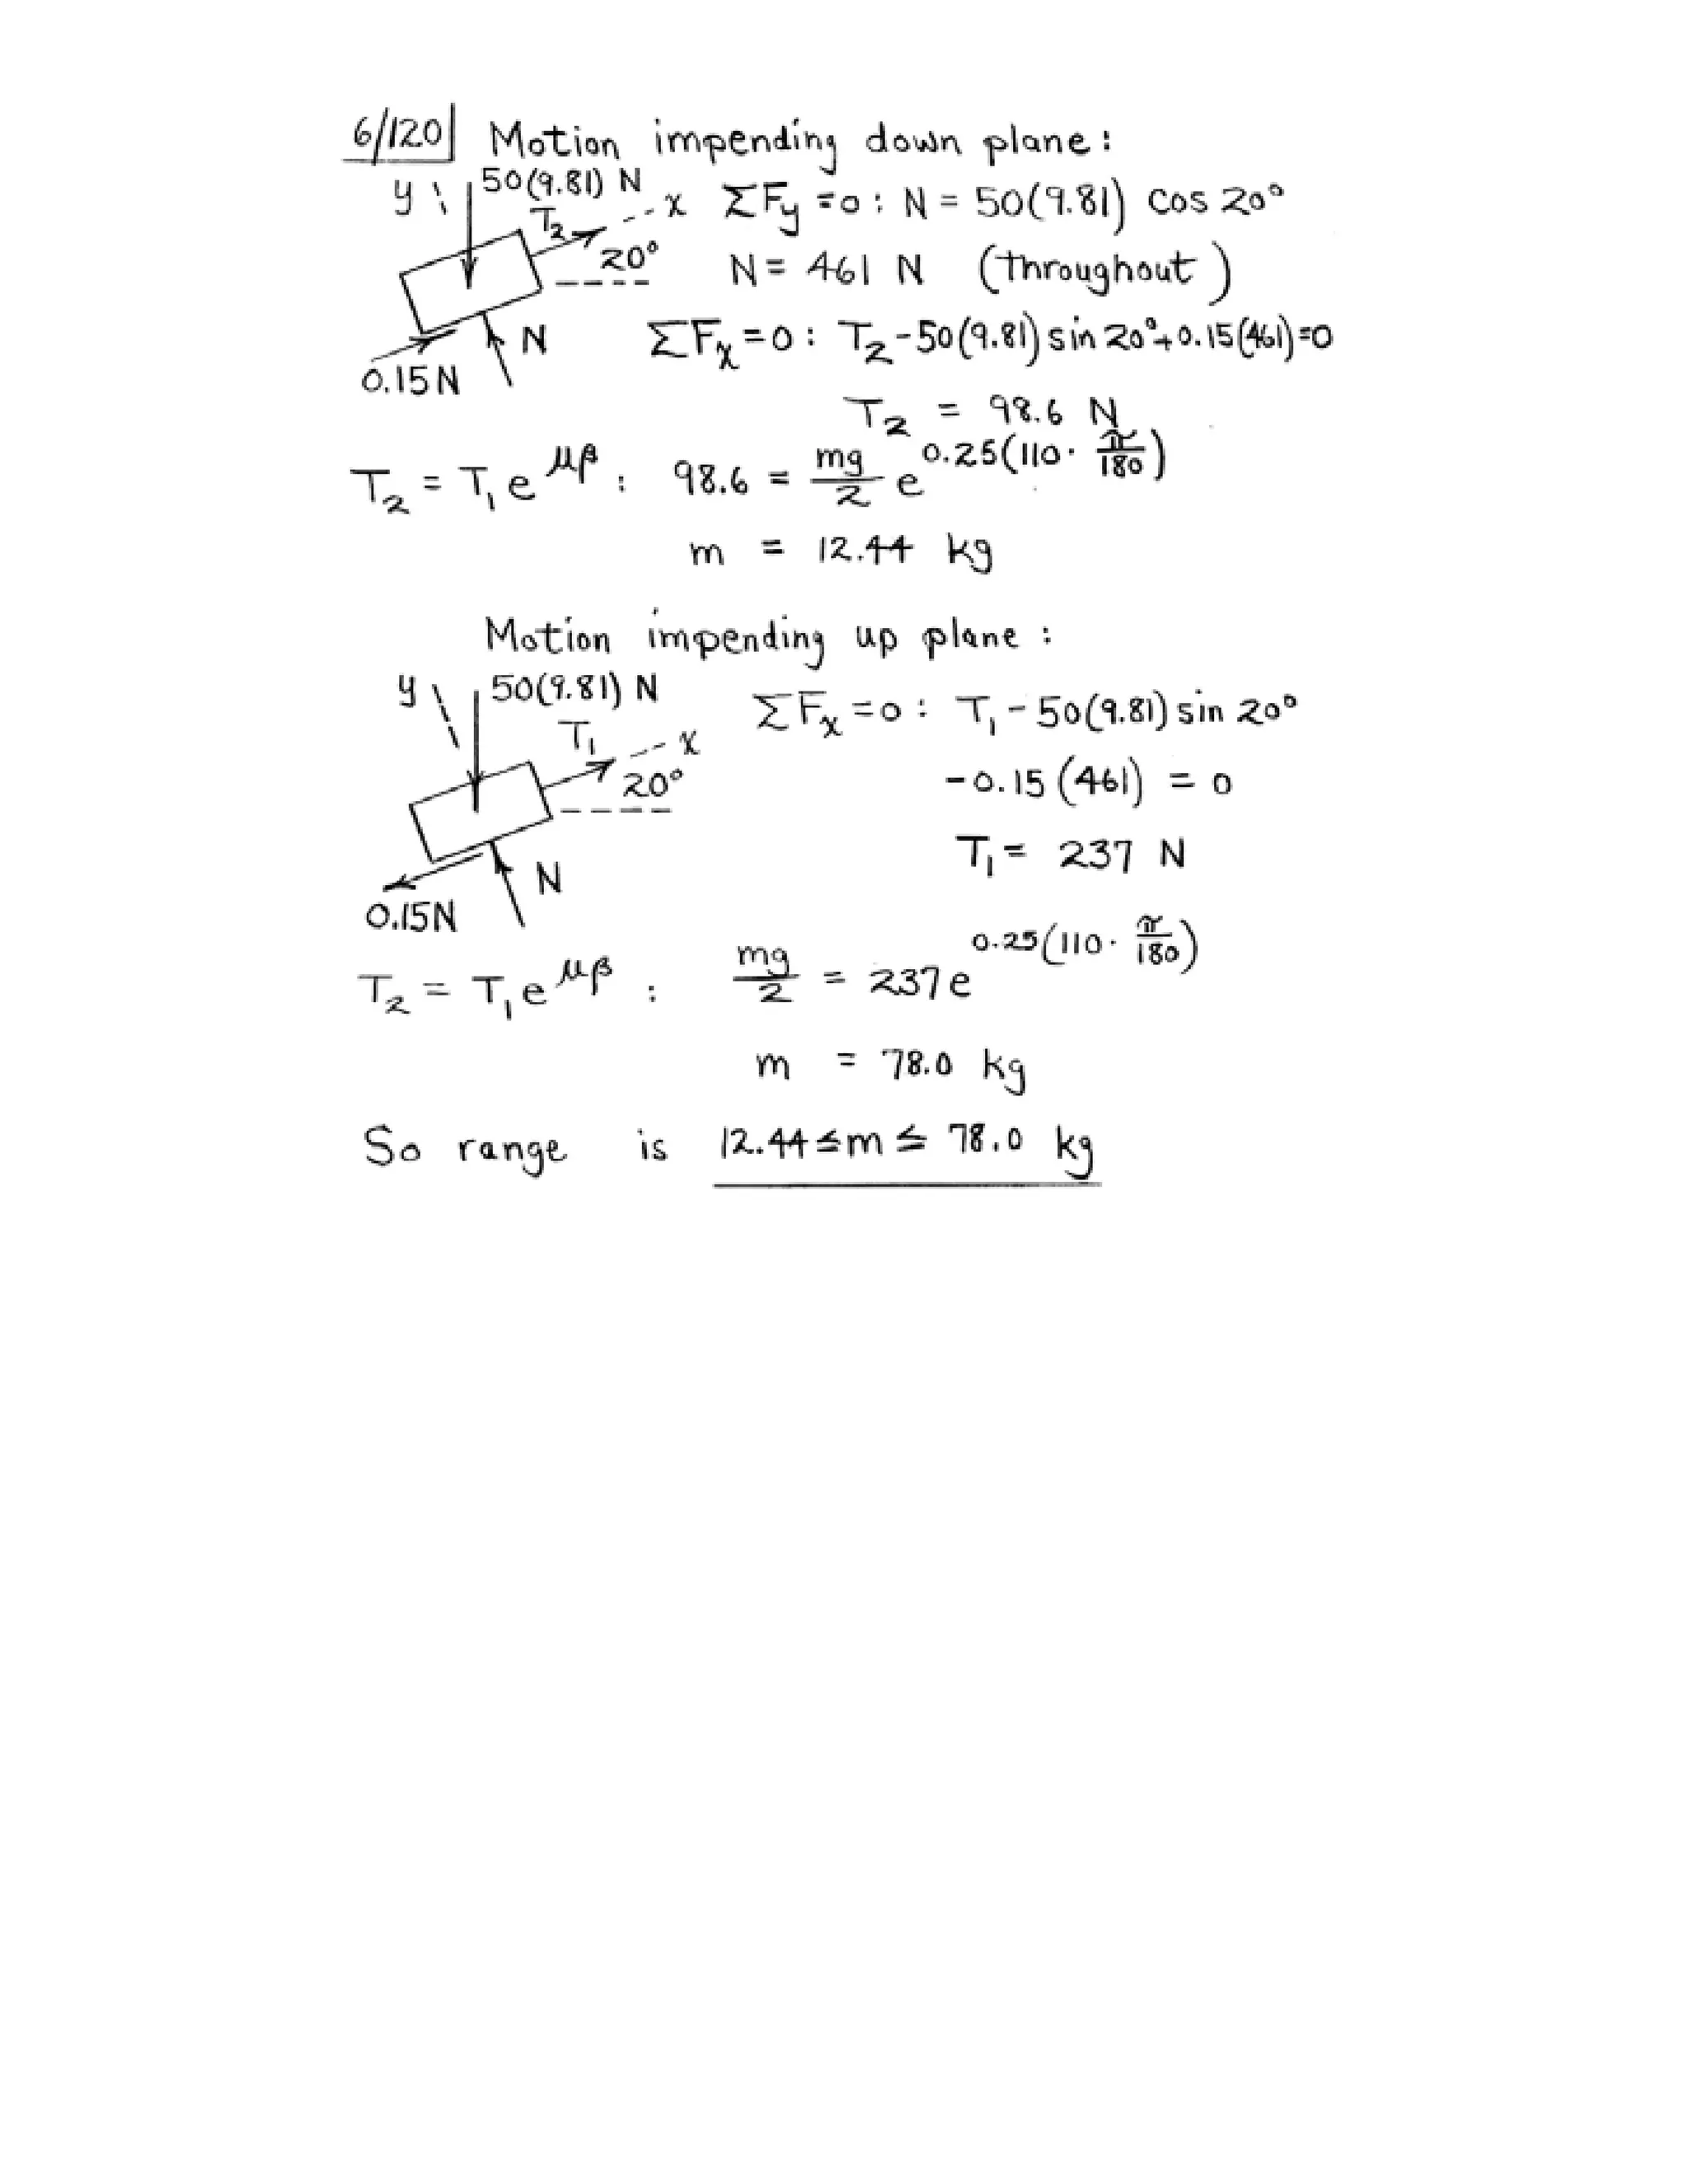 6/120 Motion impending down plane:
y 50(9.81) N x ΣFy = 0 : N = 50(9.81) cos 20°
T₂ 20° N = 461 N (throughout)
N ΣFx = 0 : T₂ - 50(9.81) sin 20° + 0.15(461) = 0
0.15N
T₂ = 98.6 N
T₂ = T₁ e^μβ : 98.6 = mg/2 e^0.25(110 · π/180)
m = 12.44 kg
Motion impending up plane :
y 50(9.81) N ΣFx = 0 : T₁ - 50(9.81) sin 20°
T₁ x
20° - 0.15 (461) = 0
N T₁ = 237 N
0.15N
T₂ = T₁ e^μβ : mg/2 = 237 e^0.25(110 · π/180)
m = 78.0 kg
So range is 12.44 ≤ m ≤ 78.0 kg